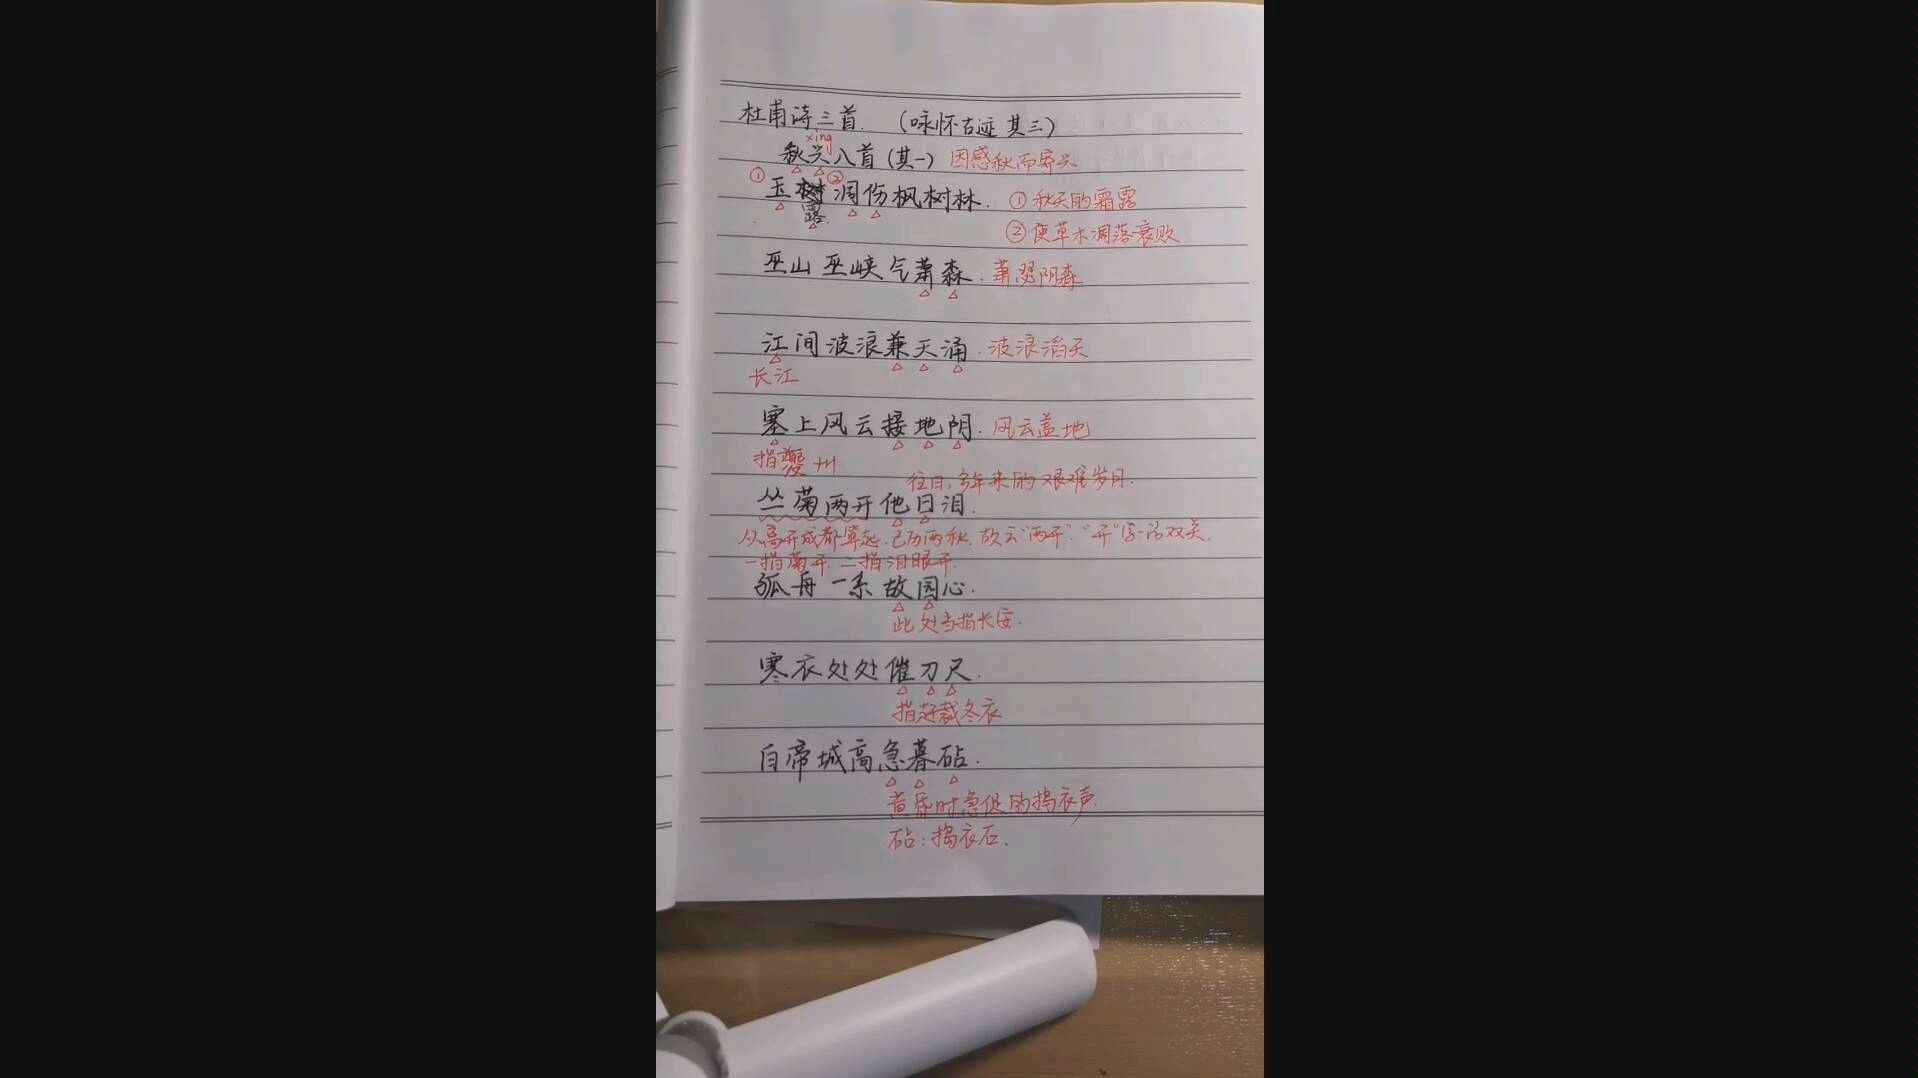 杜甫诗三首. (咏怀古迹 其三)
xìng
秋兴八首(其一) 因感秋而寄兴
① ②
玉凋伤枫树林. ①秋天的霜露
露
②使草木凋落衰败
巫山巫峡气萧森. 萧瑟阴森
江间波浪兼天涌. 波浪滔天
长江
塞上风云接地阴. 风云盖地
指夔州
往日,多年来的艰难岁月.
丛菊两开他日泪.
从离开成都算起.已历两秋.故云“两开”.“开”字一语双关.
一指菊开.二指泪眼开.
孤舟一系故园心.
此处当指长安.
寒衣处处催刀尺.
指赶裁冬衣
白帝城高急暮砧.
黄昏时急促的捣衣声.
砧:捣衣石.